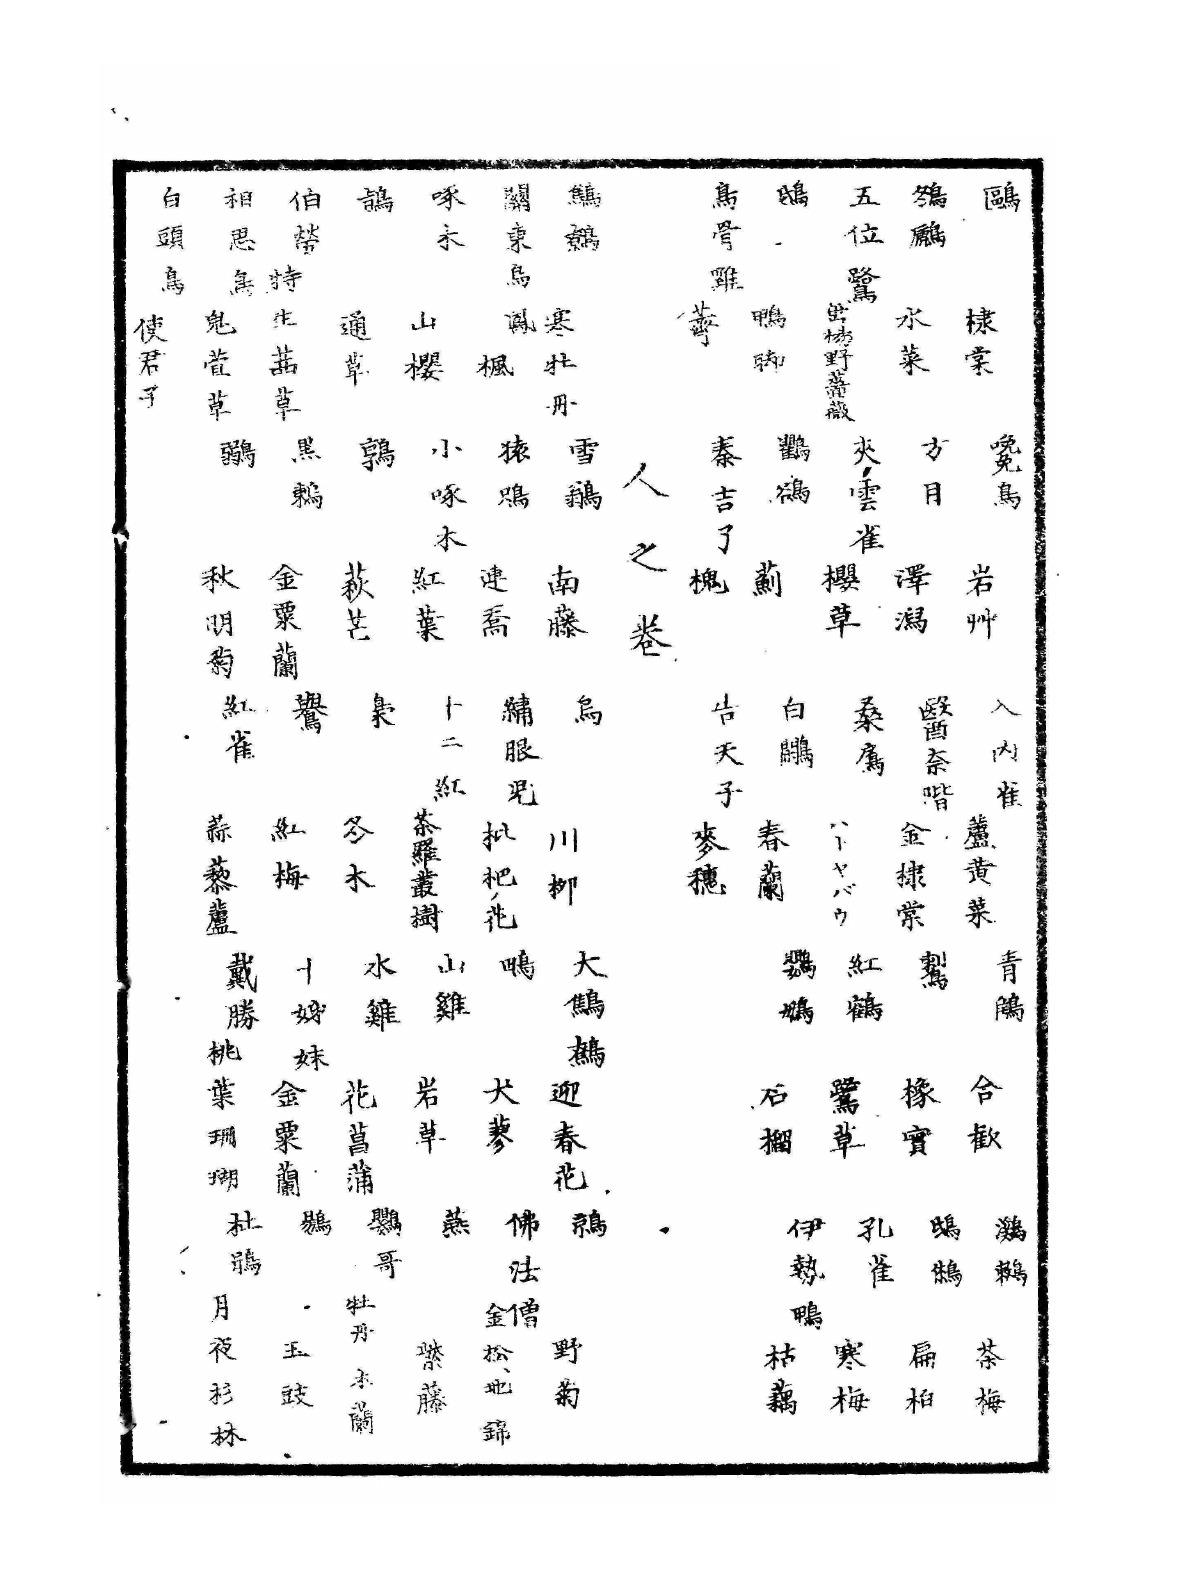 鷗 棣棠 㝃鳥 岩艸 入内雀 蘆黄菜 青鷳 合歓 鸂鶒 茶梅
水菜 方目 澤瀉 醫奈喈 金棣棠 鷲 橡實 鴟鵂 扁柏
五位鷺 野薔薇 夾雲雀 櫻草 桑鳸 ハトヤバウ 紅鶴 鷺草 孔雀 寒梅
鴟 鴨脚 鸛鵒 薊 白鷳 春蘭 鸚鵡 石榴 伊勢鴨 枯藕
烏骨雞 秦吉了 槐 告天子 麥穗
人之卷
寒牡丹 雪鶲 南藤 烏 川柳 大鷦鷯 迎春花 鶉 野菊
關東鳥 鳳 楓 猿鴞 連喬 繡眼兒 枇杷ノ花 鴫 犬蓼 佛法僧 金松 地錦
啄木 山櫻 小啄木 紅葉 十二紅 茶羅叢樹 山雞 岩草 燕 紫藤
通草 鶉 萩芒 梟 冬木 水雞 花菖蒲 鸚哥 牡丹 木蘭
伯勞 特生茜草 黒鶫 金粟蘭 鷽 紅梅 十姊妹 金粟蘭 玉豉
相思鳥 鬼萱草 鶸 秋明菊 紅雀 蒜藜蘆 戴勝 桃葉珊瑚 杜鵑 月夜 杉林
白頭鳥 使君子